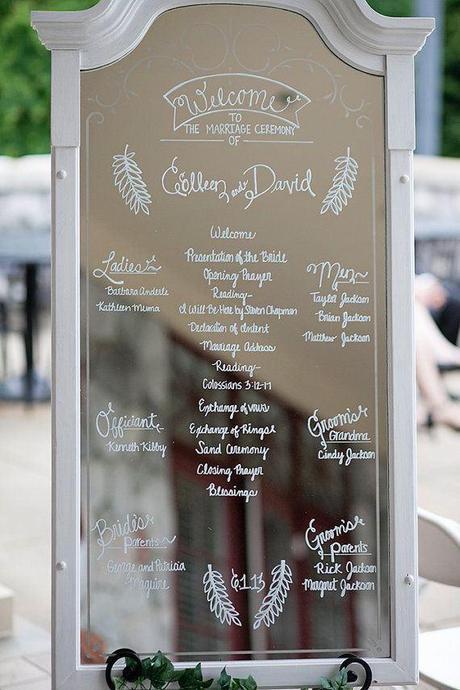 Welcome
TO
THE MARRIAGE CEREMONY
OF
Colleen and David
Welcome
Presentation of the Bride
Opening Prayer
Reading-
I Will Be Here by Steven Chapman
Declaration of Intent
Marriage Address
Reading-
Colossians 3:12-17
Exchange of vows
Exchange of Rings
Sand Ceremony
Closing Prayer
Blessings
6.1.13
Ladies
Barbara Anderle
Kathleen Muma
Officiant
Kenneth Kirby
Bride's
Parents
George and Patricia
Maguire
Men
Taylor Jackson
Brian Jackson
Matthew Jackson
Groom's
Grandma
Cindy Jackson
Groom's
Parents
Rick Jackson
Margaret Jackson